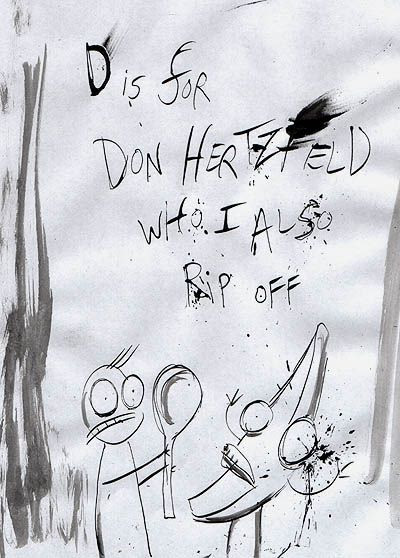 D is for
Don Hertzfeld
who I also
Rip off